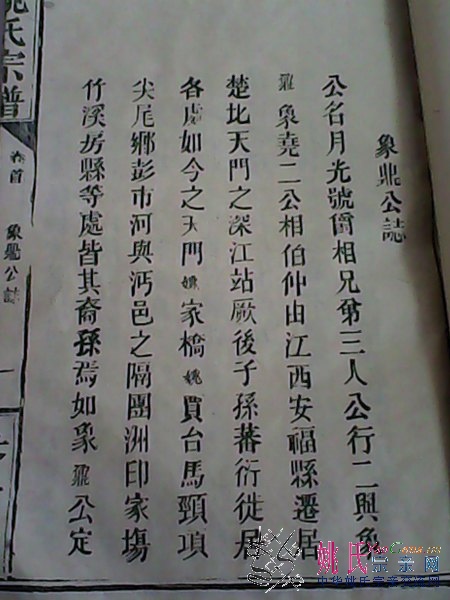 象鼎公誌
公名月光號相兄弟三人公行二與象
鼐象堯二公相伯仲由江西安福縣遷居
楚北天門之深江站厥後子孫蕃衍徙居
各處如今之天門姚家橋姚買台馬頸項
尖尾鄉彭市河與沔邑之隔團洲印家塲
竹溪房縣等處皆其裔孫焉如象鼐公定
氏宗譜
卷首
象鼎公誌
一
姚氏宗亲网